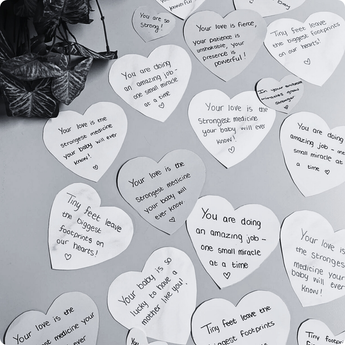 You are so
strong!
Your love is fierce,
your patience is
immense, your
presence is
powerful!
Tiny feet leave
the biggest footprints
on our hearts!
You are doing
an amazing job -
one small miracle
at a time
Your love is the
strongest medicine
your baby will ever
know!
In your
miracles grow
stronger
Your love is the
strongest medicine
your baby will ever
know!
You are doing
amazing job - one
small miracle
at a time
Your love is the
strongest medicine
your baby will
ever know
Tiny feet leave
the biggest
footprints on
our hearts!
You are doing
an amazing job -
one small miracle
at a time
Your love is
the strongest
medicine your
baby will ever
know!
Your baby is so
lucky to have a
mother like you!
Your love is the
strongest medicine your
baby will ever
Tiny feet leave the
biggest footprints
Tiny
the